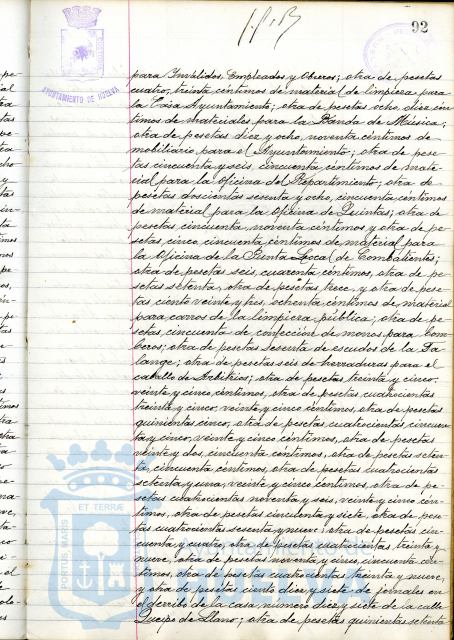 92
AYUNTAMIENTO DE HUELVA
para Inválidos Empleados y Obreros; otra de pesetas
cuatro, treinta céntimos de material de limpieza para
la Casa Ayuntamiento; otra de pesetas ocho, diez cén-
timos de materiales para la Banda de Música;
otra de pesetas diez y ocho, noventa céntimos de
mobiliario para el Ayuntamiento; otra de pese-
tas cincuenta y seis, cincuenta céntimos de mate-
rial para la Oficina del Repartimiento; otra de
pesetas doscientas sesenta y ocho, cincuenta céntimos
de material para la Oficina de Quintas; otra de
pesetas cincuenta, noventa céntimos y otra de pe-
setas, cinco, cincuenta céntimos de material para
la Oficina de la Junta Local de Combatientes;
otra de pesetas seis, cuarenta céntimos, otra de pe-
setas setenta, otra de pesetas trece, y otra de pese-
tas ciento veinte y tres, ochenta céntimos de material
para carros de la limpieza pública; otra de pe-
setas, cincuenta de confección de monos para bom-
beros; otra de pesetas sesenta de escudos de la Fa-
lange; otra de pesetas seis de herraduras para el
caballo de Arbitrios; otra de pesetas treinta y cinco,
veinte y cinco céntimos, otra de pesetas cuatrocientas
treinta y cinco, veinte y cinco céntimos, otra de pesetas
quinientas cinco, otra de pesetas cuatrocientas, cincuen-
ta y cinco, veinte y cinco céntimos, otra de pesetas
veinte y dos, cincuenta céntimos, otra de pesetas seten-
ta, cincuenta céntimos, otra de pesetas cuatrocientas
setenta y una, veinte y cinco céntimos, otra de pe-
setas cuatrocientas noventa y seis, veinte y cinco cén-
timos, otra de pesetas cincuenta y siete, otra de pese-
tas cuatrocientas sesenta y nueve; otra de pesetas cin-
cuenta y cuatro, otra de pesetas cuatrocientas treinta y
nueve, otra de pesetas noventa y cinco, cincuenta cén-
timos, otra de pesetas cuatrocientas treinta y nueve,
y otra de pesetas ciento diez y siete de jornales en
el derribo de la casa número diez y siete de la calle
Queipo de Llano; otra de pesetas quinientas setenta
PORTUS MARIS ET TERRÆ